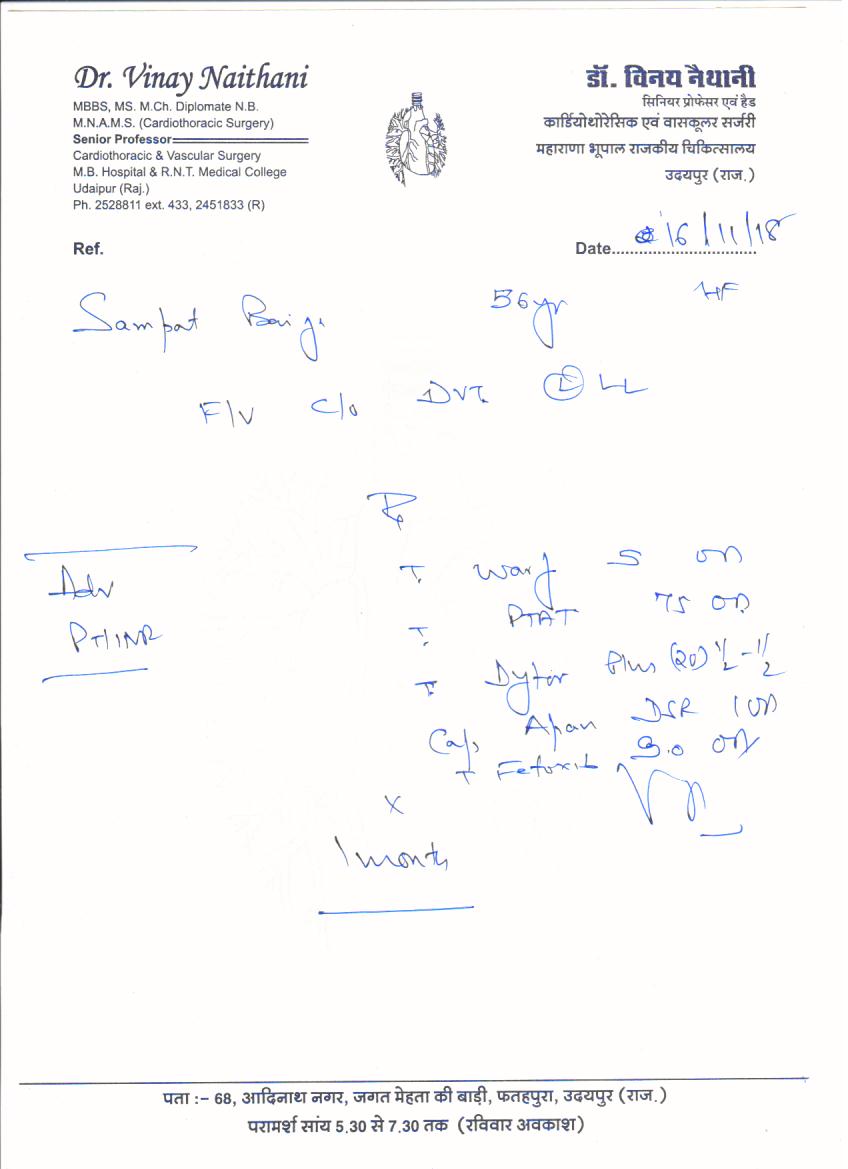 Dr. Vinay Naithani
MBBS, MS. M.Ch. Diplomate N.B.
M.N.A.M.S. (Cardiothoracic Surgery)
Senior Professor
Cardiothoracic & Vascular Surgery
M.B. Hospital & R.N.T. Medical College
Udaipur (Raj.)
Ph. 2528811 ext. 433, 2451833 (R)
डॉ. विनय नैथानी
सिनियर प्रोफेसर एवं हैड
कार्डियोथोरेसिक एवं वासकूलर सर्जरी
महाराणा भूपाल राजकीय चिकित्सालय
उदयपुर (राज.)
Ref.
Date 16/11/18
Sampat 56yr
F/V C/o DVT. (L) LL
Rx
Adv
PT/INR
T. Warf 5 OD
T. 75 OD
T. Dytor Plus (20) 1/2-1/2
Cap DSR 1 OD
T OD
x
1 month
पता :– 68, आदिनाथ नगर, जगत मेहता की बाड़ी, फतहपुरा, उदयपुर (राज.)
परामर्श सांय 5.30 से 7.30 तक (रविवार अवकाश)